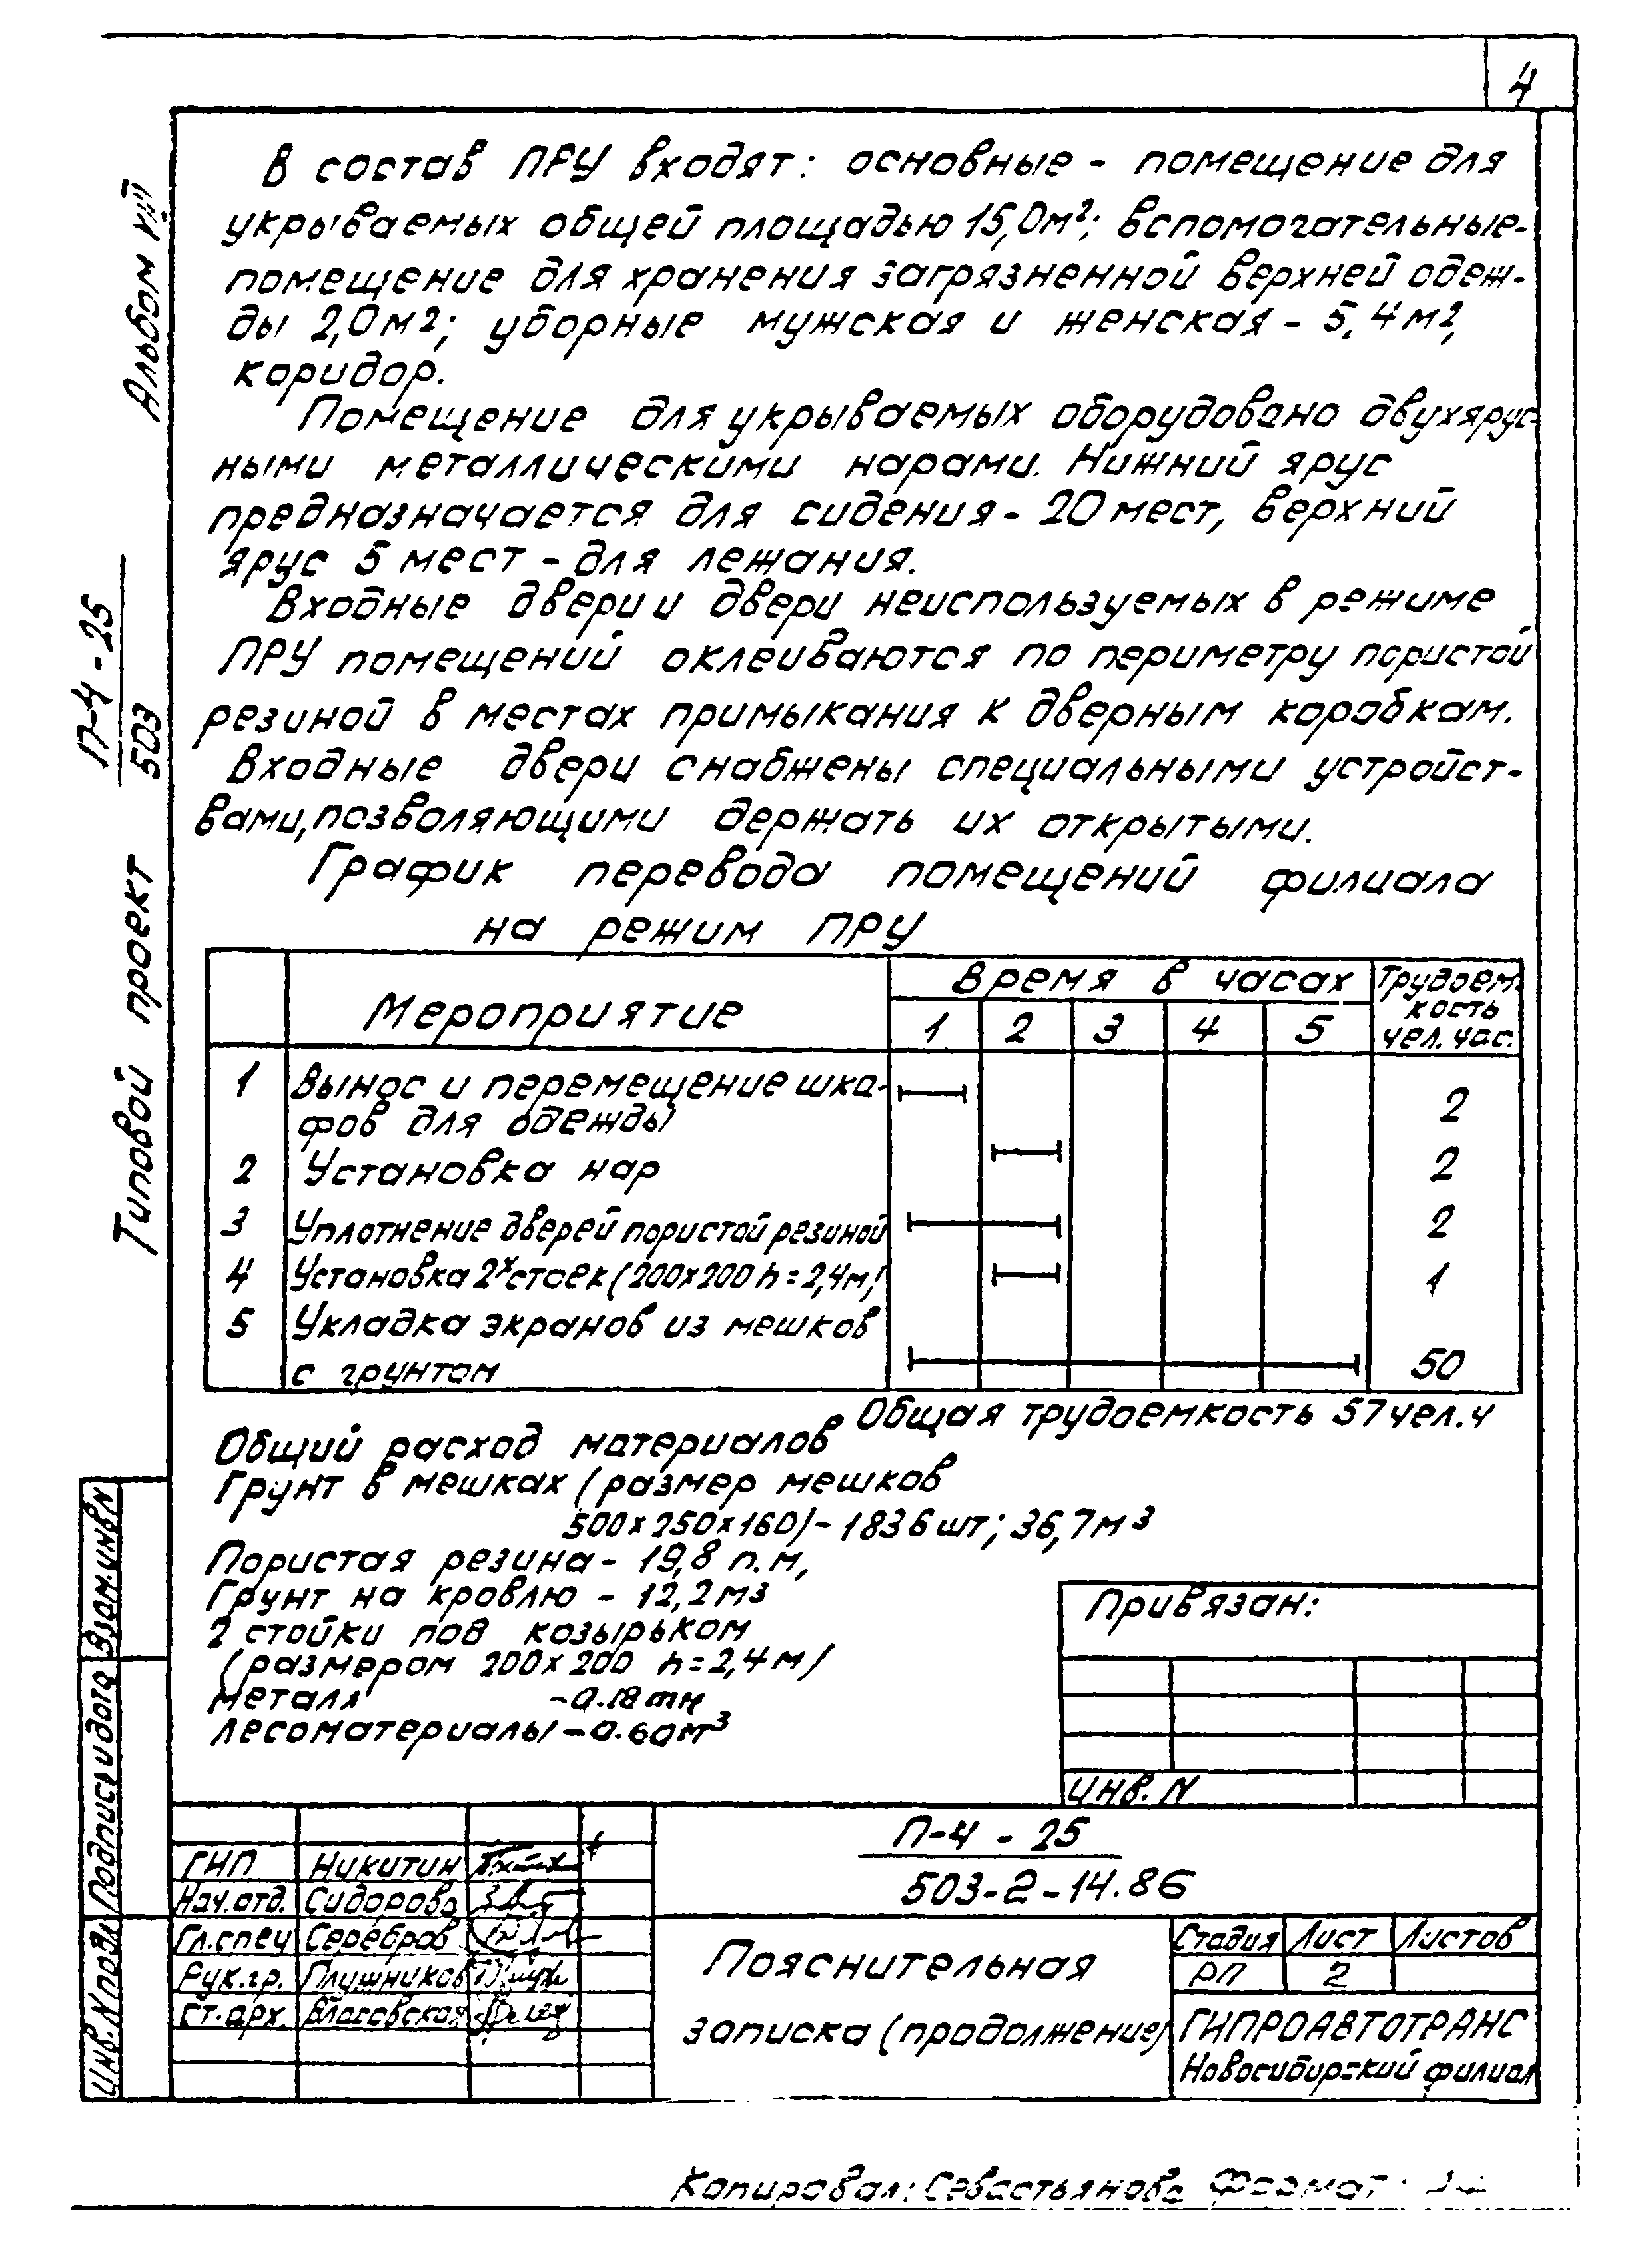 4
В состав ПРУ входят: основные - помещение для
укрываемых общей площадью 15,0м²; вспомогательные-
помещение для хранения загрязненной верхней одеж-
ды 2,0м2; уборные мужская и женская - 5.4м2,
коридор.
Помещение для укрываемых оборудовано двухярус-
ными металлическими нарами. Нижний ярус
предназначается для сидения - 20 мест, верхний
ярус 5 мест - для лежания.
Входные двери и двери неиспользуемых в режиме
ПРУ помещений оклеиваются по периметру пористой
резиной в местах примыкания к дверным коробкам.
Входные двери снабжены специальными устройст-
вами, позволяющими держать их открытыми.
График перевода помещений филиала
на режим ПРУ
Мероприятие
Время в часах
Трудоем.
кость
чел. час.
1 2 3 4 5
1 Вынос и перемещение шка-
фов для одежды 2
2 Установка нар 2
3 Уплотнение дверей пористой резиной 2
4 Установка 2х стоек (200х200 h=2,4м) 1
5 Укладка экранов из мешков
с грунтом 50
Общая трудоемкость 57 чел.ч
Общий расход материалов
Грунт в мешках (размер мешков
500х250х160) - 1836 шт; 36,7м³
Пористая резина - 19,8 п.м,
Грунт на кровлю - 12,2м3
2 стойки под козырьком
(размером 200х200 h=2,4м)
металл -0.18 тн
лесоматериалы -0.60м³
Привязан:
Инв. N
П-4 - 25
503-2-14.86
ГИП Никитин
Нач.отд. Сидорова
Гл.спец Серебров
Рук.гр. Плужников
Ст.арх. Власовская
Пояснительная
записка (продолжение)
Стадия Лист Листов
РП 2
ГИПРОАВТОТРАНС
Новосибирский филиал
Копировал: Севастьянова Формат:
Альбом VII
П-4 - 25
503
Типовой проект
Взам.инв N
Подпись и дата
Инв. N подл